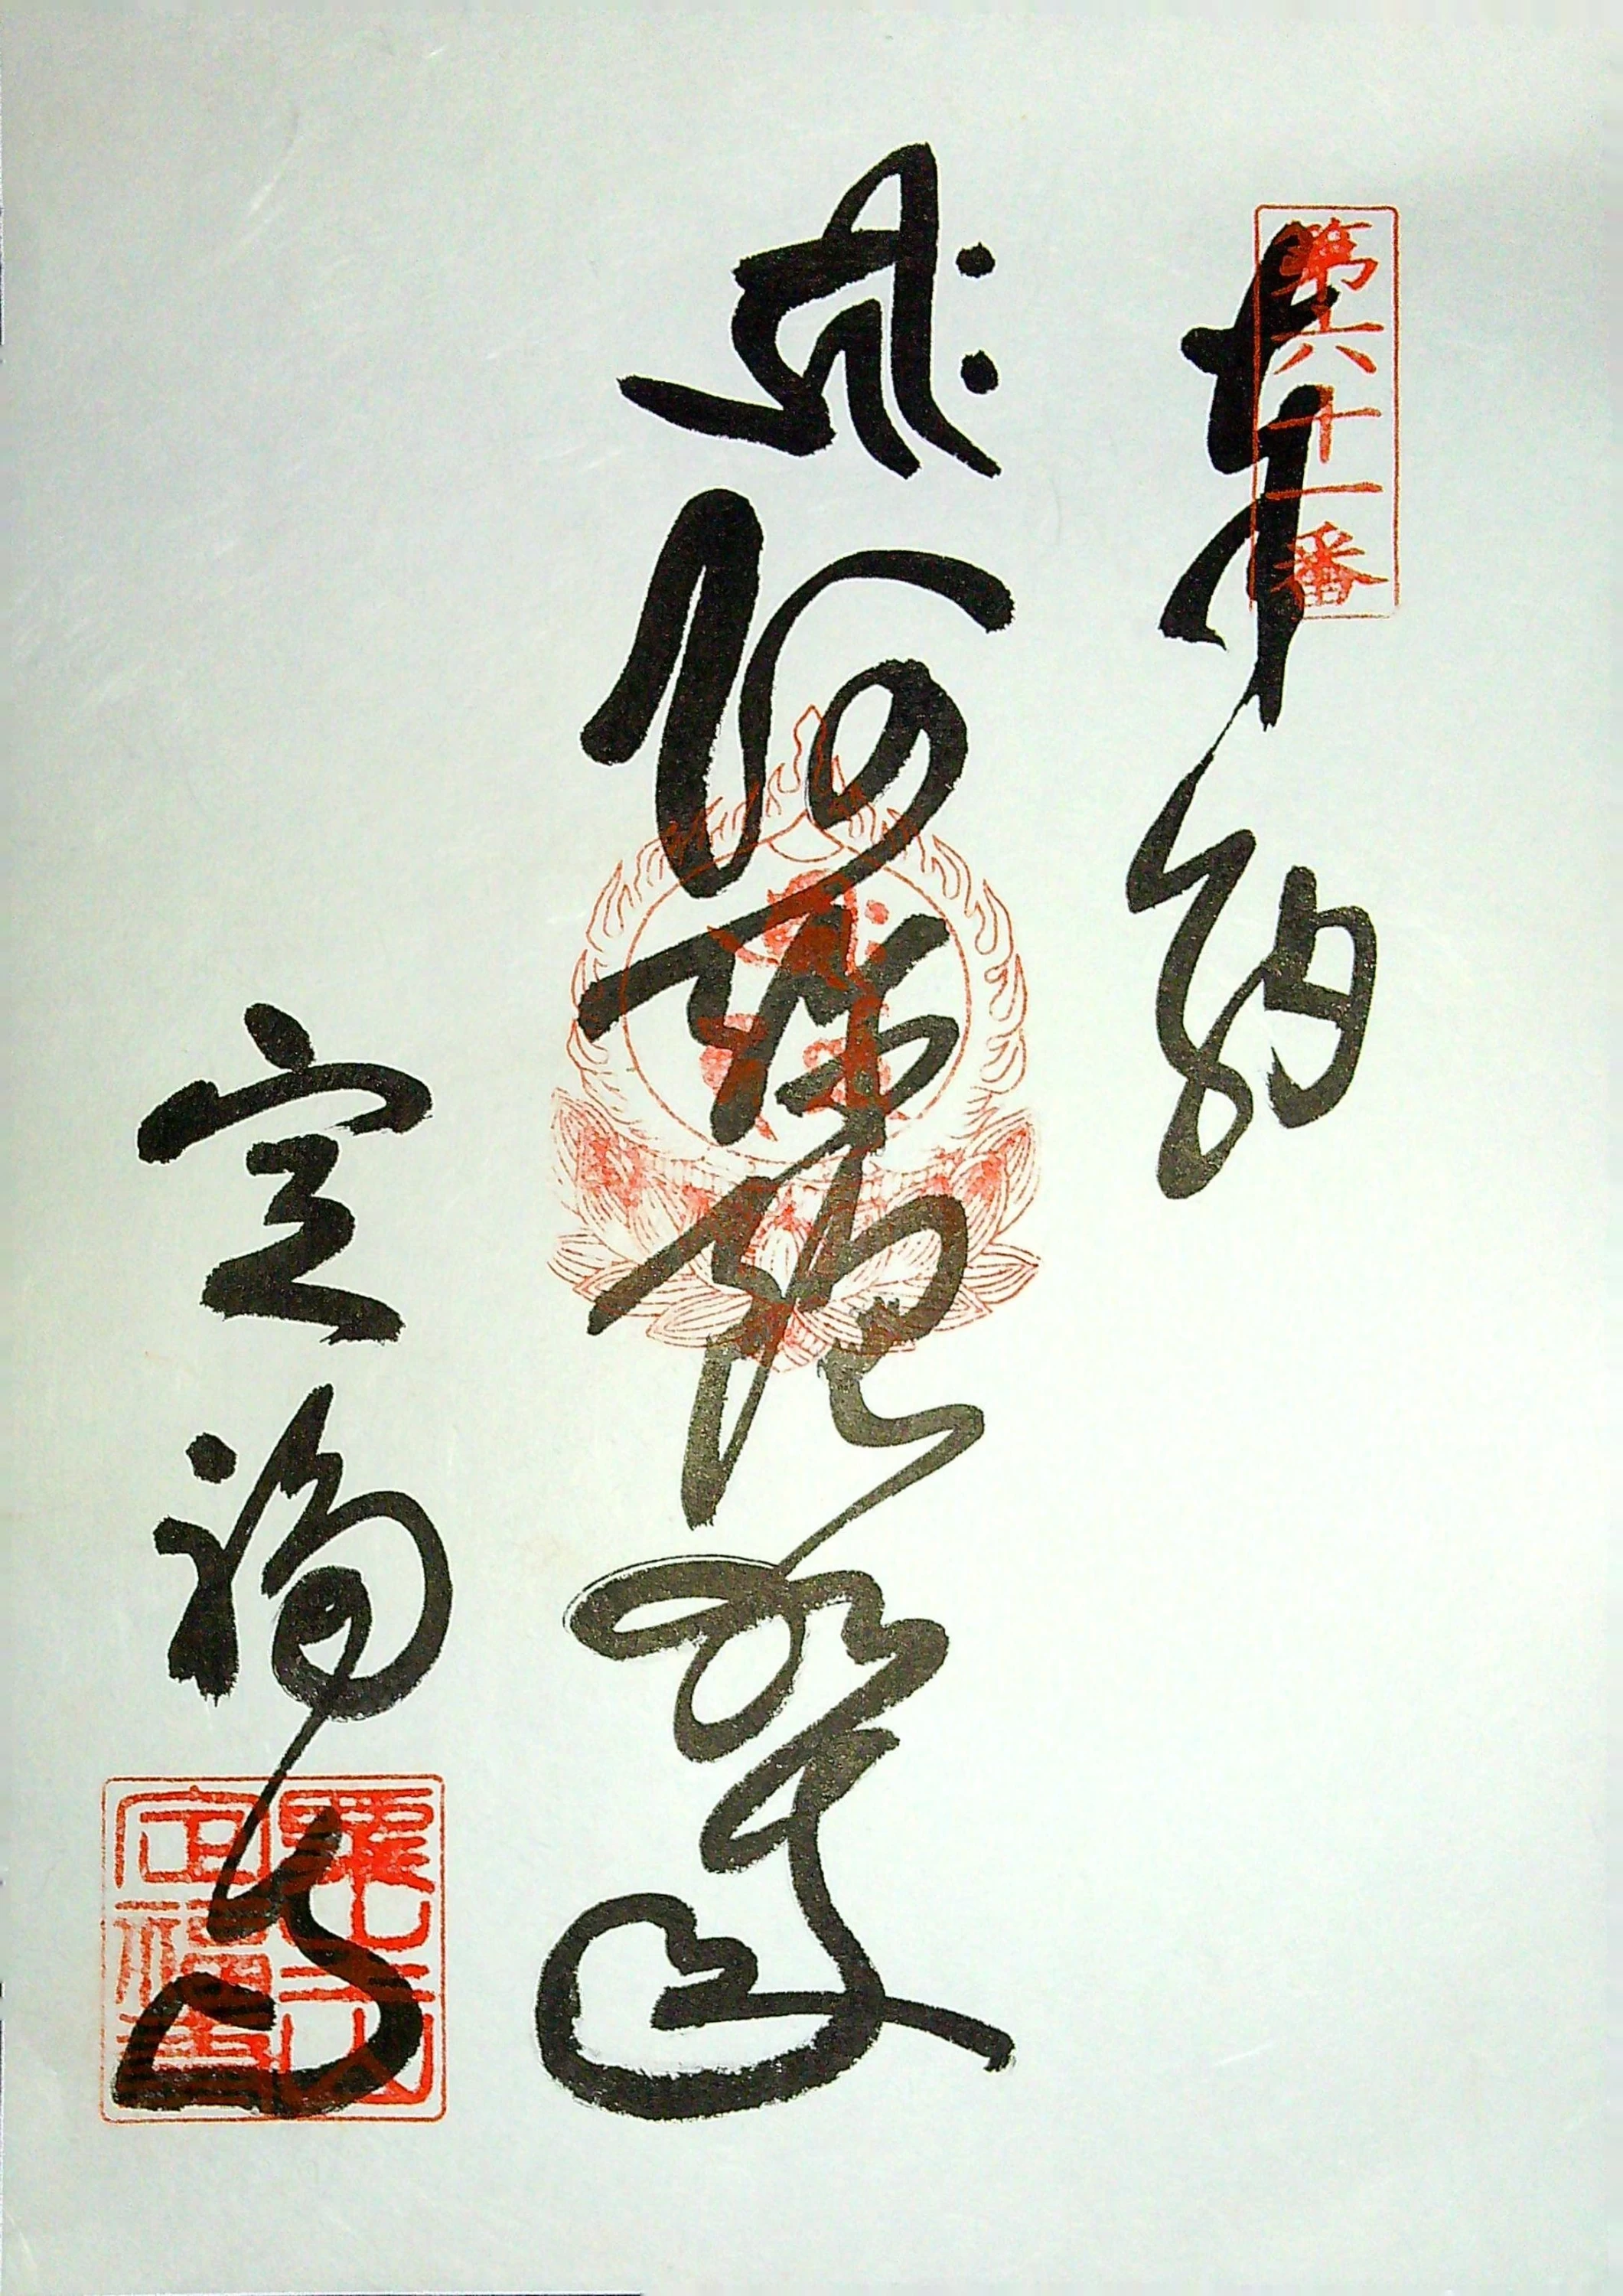 第六十一番
奉納
阿弥陀如来
定福寺
定福寺